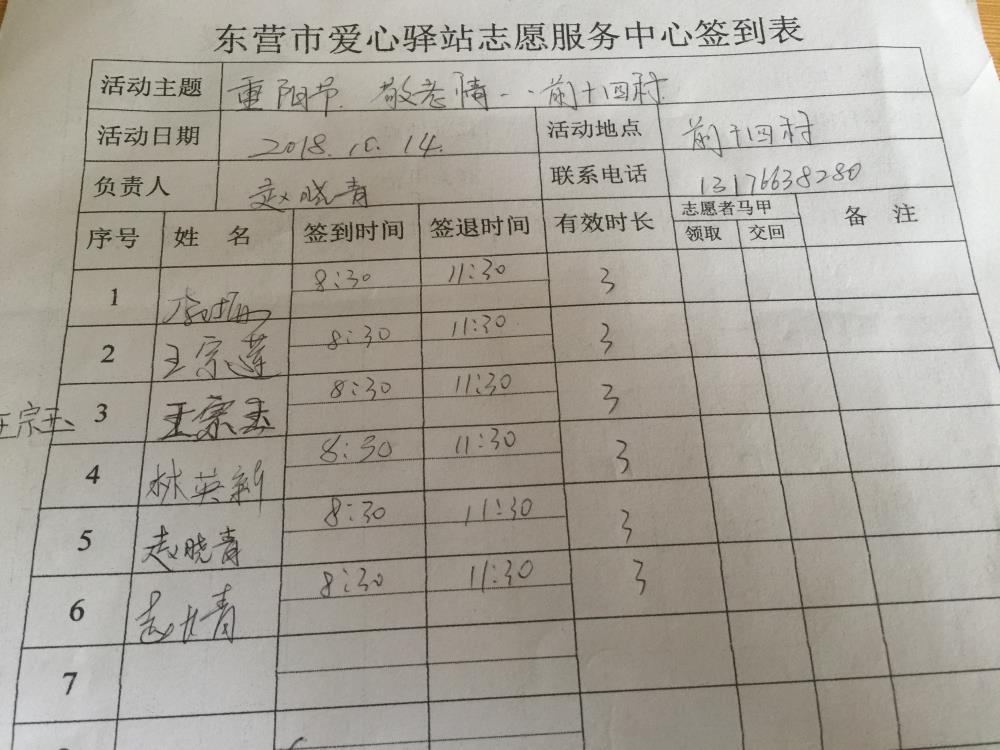 东营市爱心驿站志愿服务中心签到表
活动主题 重阳节.敬老情--前十四村
活动日期 2018.10.14. 活动地点 前十四村
负责人 赵晓青 联系电话 13176638280
序号 姓 名 签到时间 签退时间 有效时长 志愿者马甲 备 注
领取 交回
1 8:30 11:30 3
2 王宗莲 8:30 11:30 3
王宗玉 3 王宗玉 8:30 11:30 3
4 林英新 8:30 11:30 3
5 赵晓青 8:30 11:30 3
6 8:30 11:30 3
7